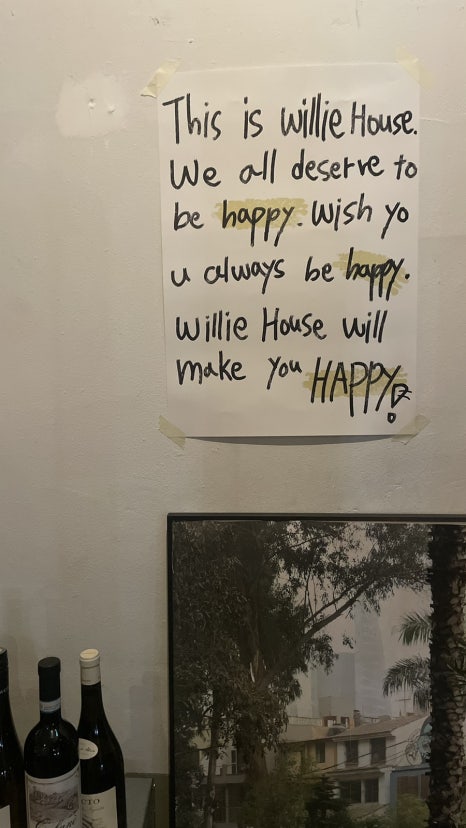 This is Willie House.
We all deserve to
be happy. Wish yo
u always be happy.
Willie House will
make you HAPPY!